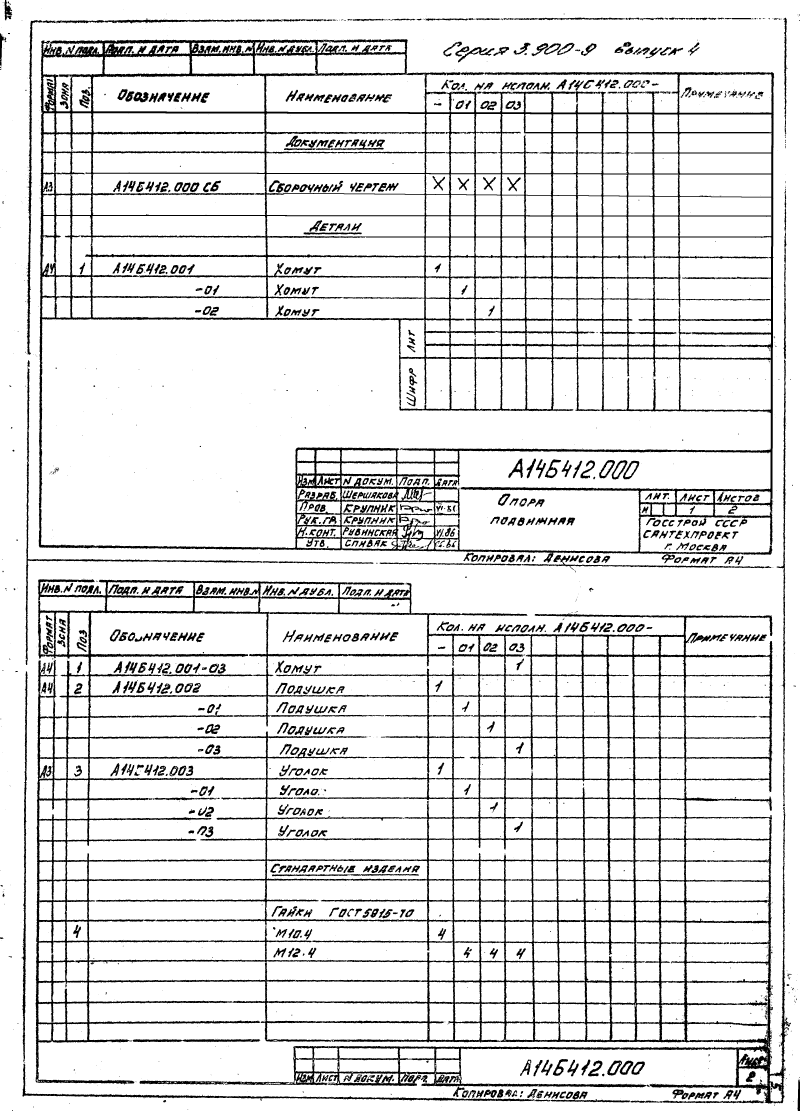 Инв.N подл. Подп. и дата Взам.инв.N Инв.N дубл. Подп. и дата
Серия 3.900-9 выпуск 4
Формат Зона Поз. Обозначение Наименование Кол. на исполн. А14Б412.000- Примечание
- 01 02 03
Документация
А3 А14Б412.000 СБ Сборочный чертеж X X X X
Детали
А4 1 А14Б412.001 Хомут 1
-01 Хомут 1
-02 Хомут 1
Лит
Шифр
А14Б412.000
Изм Лист N докум. Подп. Дата
Разраб. Шершакова
Пров. Крупник VI-86
Рук.гр. Крупник
Н.конт. Рубинская VI.86
Утв. Спивак
Опора
подвижная
Лит. Лист Листов
И 1 2
Госстрой СССР
Сантехпроект
г. Москва
Копировал: Денисова Формат А4
Инв.N подл. Подп. и дата Взам.инв.N Инв.N дубл. Подп. и дата
Формат Зона Поз Обозначение Наименование Кол. на исполн. А14Б412.000- Примечание
- 01 02 03
А4 1 А14Б412.001-03 Хомут 1
А4 2 А14Б412.002 Подушка 1
-01 Подушка 1
-02 Подушка 1
-03 Подушка 1
А3 3 А14Б412.003 Уголок 1
-01 Уголо 1
-02 Уголок 1
-03 Уголок 1
Стандартные изделия
Гайки ГОСТ 5915-70
4 М10.4 4
М12.4 4 4 4
А14Б412.000
Лист
2
Изм Лист N докум. Подп. Дата
Копировал: Денисова Формат А4
5